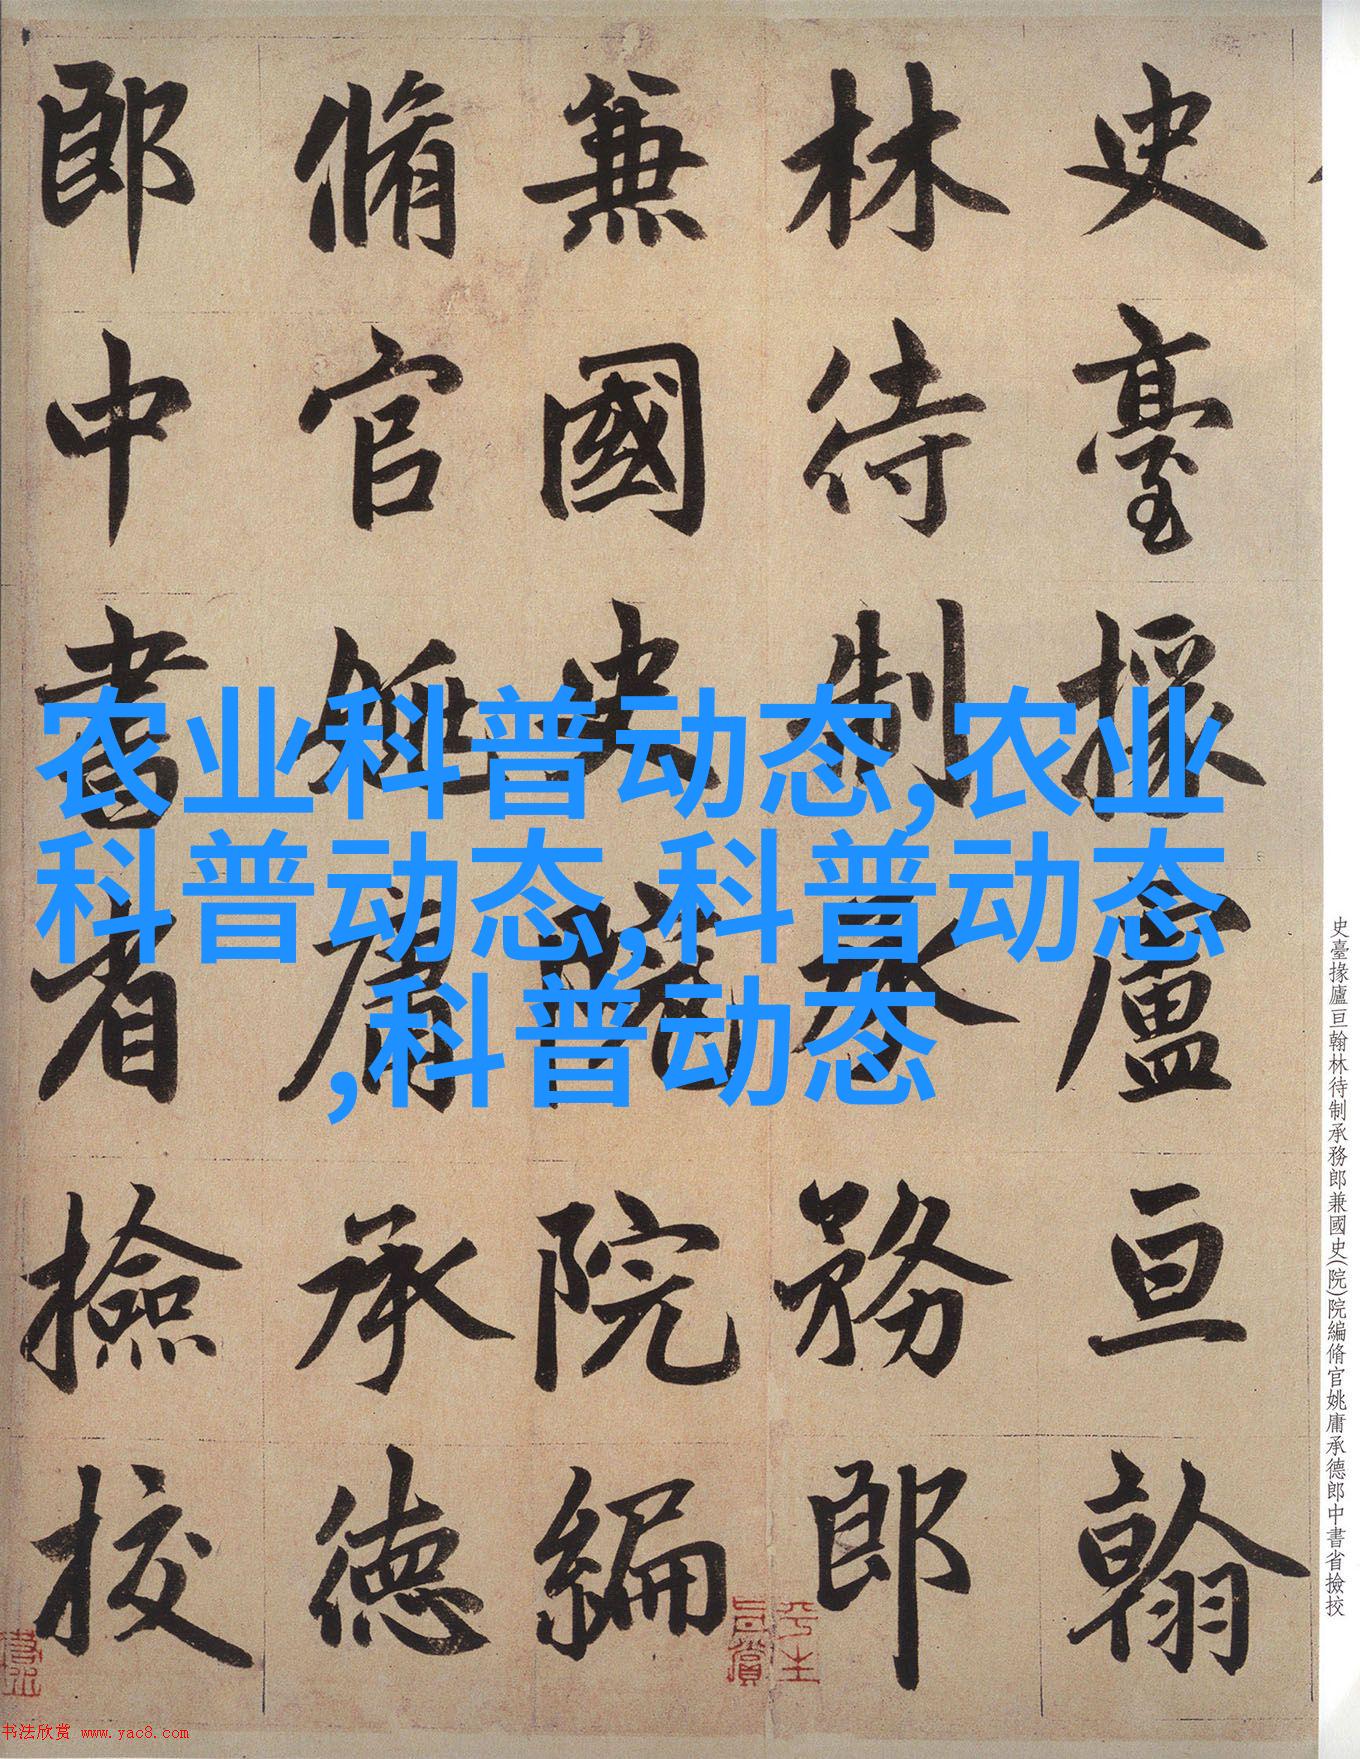 史臺掾廬亘翰
林待制承務郎
兼國史院院編
脩官姚庸承德
郎中書省撿挍
农业科普动态,农业
科普动态,科普动态
,科普动态
史臺掾廬亘翰林待制承務郎兼國史(院)院編脩官姚庸承德郎中書省撿挍
平生
真賞
书法欣赏 www.yac8.com